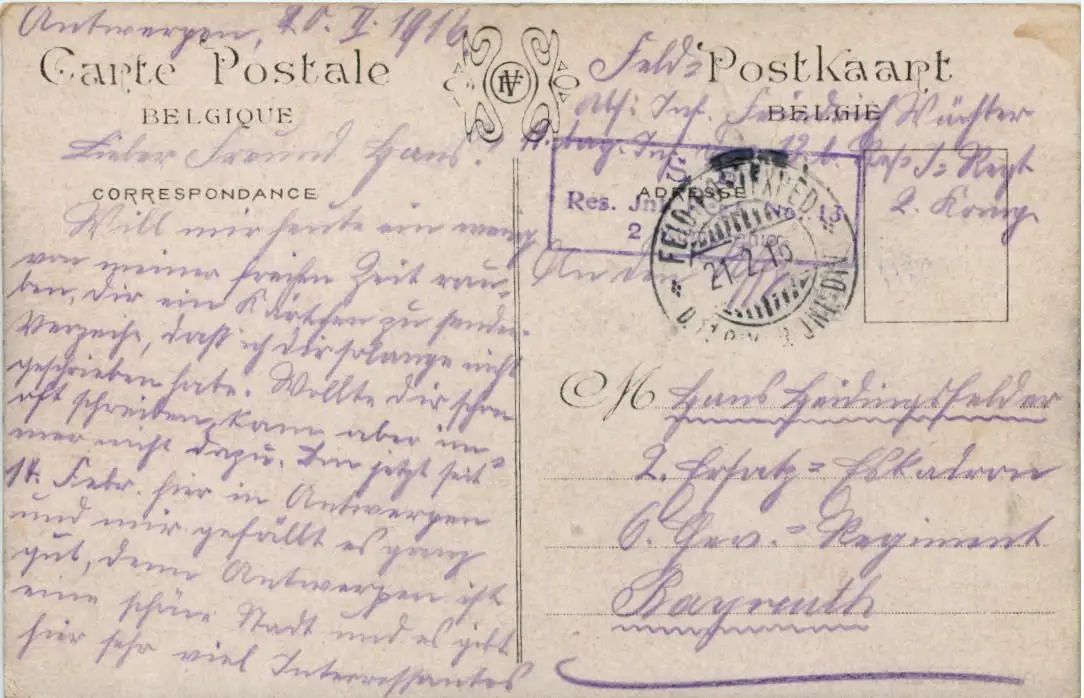 Antwerpen, 20. II. 1916
Carte Postale
BELGIQUE
Lieber Freund Hans!
CORRESPONDANCE
Will mir heute ein wenig
von meiner freien Zeit rau-
ben, dir ein Kärtchen zu senden.
Verzeihe, dass ich dir solange nicht
geschrieben habe. Wollte dir schon
oft schreiben, kam aber im-
mer nicht dazu. Bin jetzt seit
14. Febr. hier in Antwerpen
und mir gefällt es ganz
gut, denn Antwerpen ist
eine schöne Stadt und es gibt
hier sehr viel Interressantes
Feld- Postkaart
BELGIË
Abs: Inf. Friedrich Wächter
12. b. Res. I. Regt
2. Komp.
ADRESSE
Res. Jnf. No. 13
2
FELD-POSTEXPED.
21.2.16
M Hans Heidingsfelder
2. Ersatz-Eskadron
6. Chev.-Regiment
Bayreuth